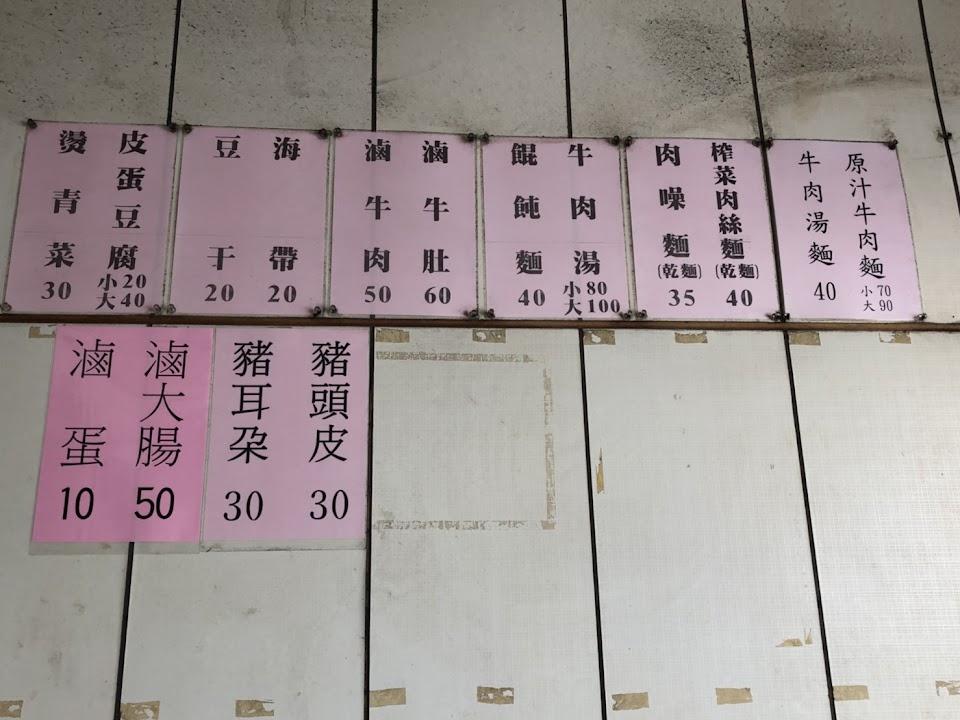 原汁牛肉麵 小70 大90
牛肉湯麵 40
榨菜肉絲麵(乾麵) 40
肉噪麵(乾麵) 35
牛肉湯 小80 大100
餛飩麵 40
滷牛肚 60
滷牛肉 50
海帶 20
豆干 20
皮蛋豆腐 小20 大40
燙青菜 30
豬頭皮 30
豬耳朶 30
滷大腸 50
滷蛋 10